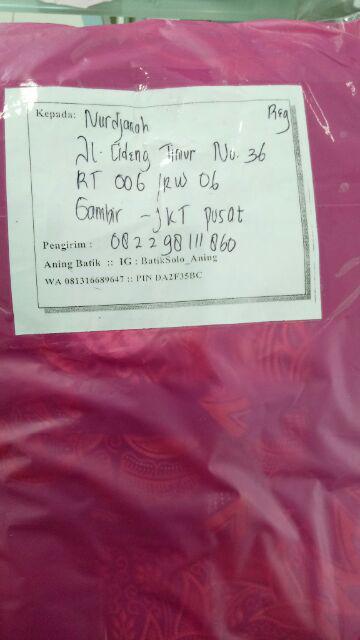 Kepada: Nurdjanah Reg
Jl. Cideng Timur No. 36
RT 006 /RW 06
Gambir - JKT Pusat
Pengirim : 082298111860
Aning Batik :: IG : BatikSolo_Aning
WA 081316689647 :: PIN DA2F35BC